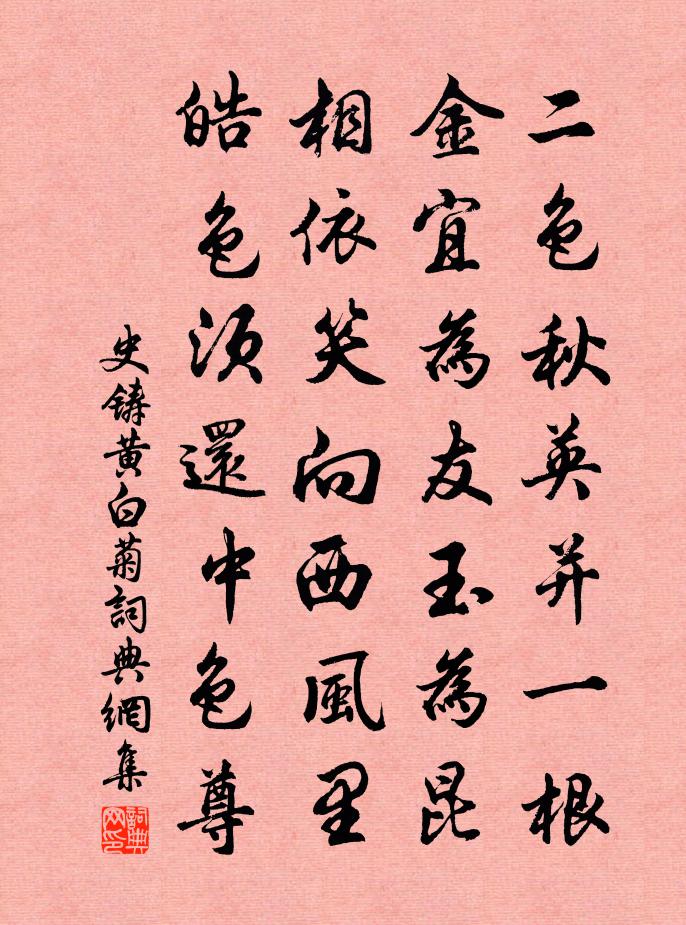 二色秋英并一根
金宜為友玉為昆
相依笑向西風里
皓色須還中色尊
史鑄黄白菊詞典網集
詞典网印